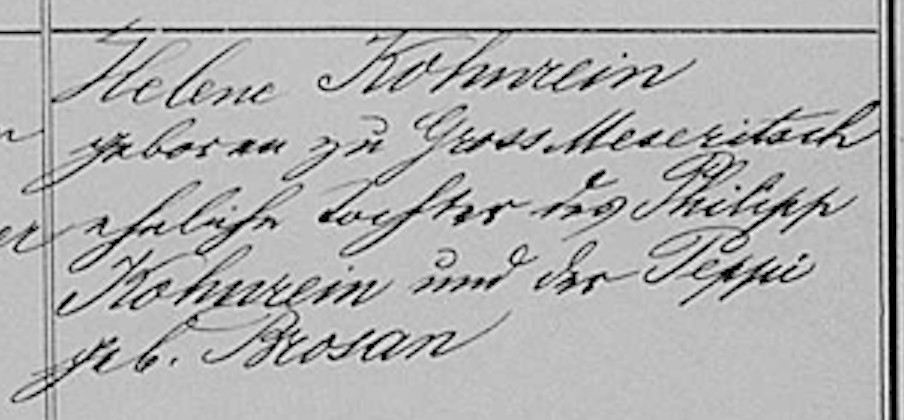 Helene Kohnrein
geboren zu Gross Meseritsch
eheliche Tochter des Philipp
Kohnrein und der Peppi
geb. Brosan